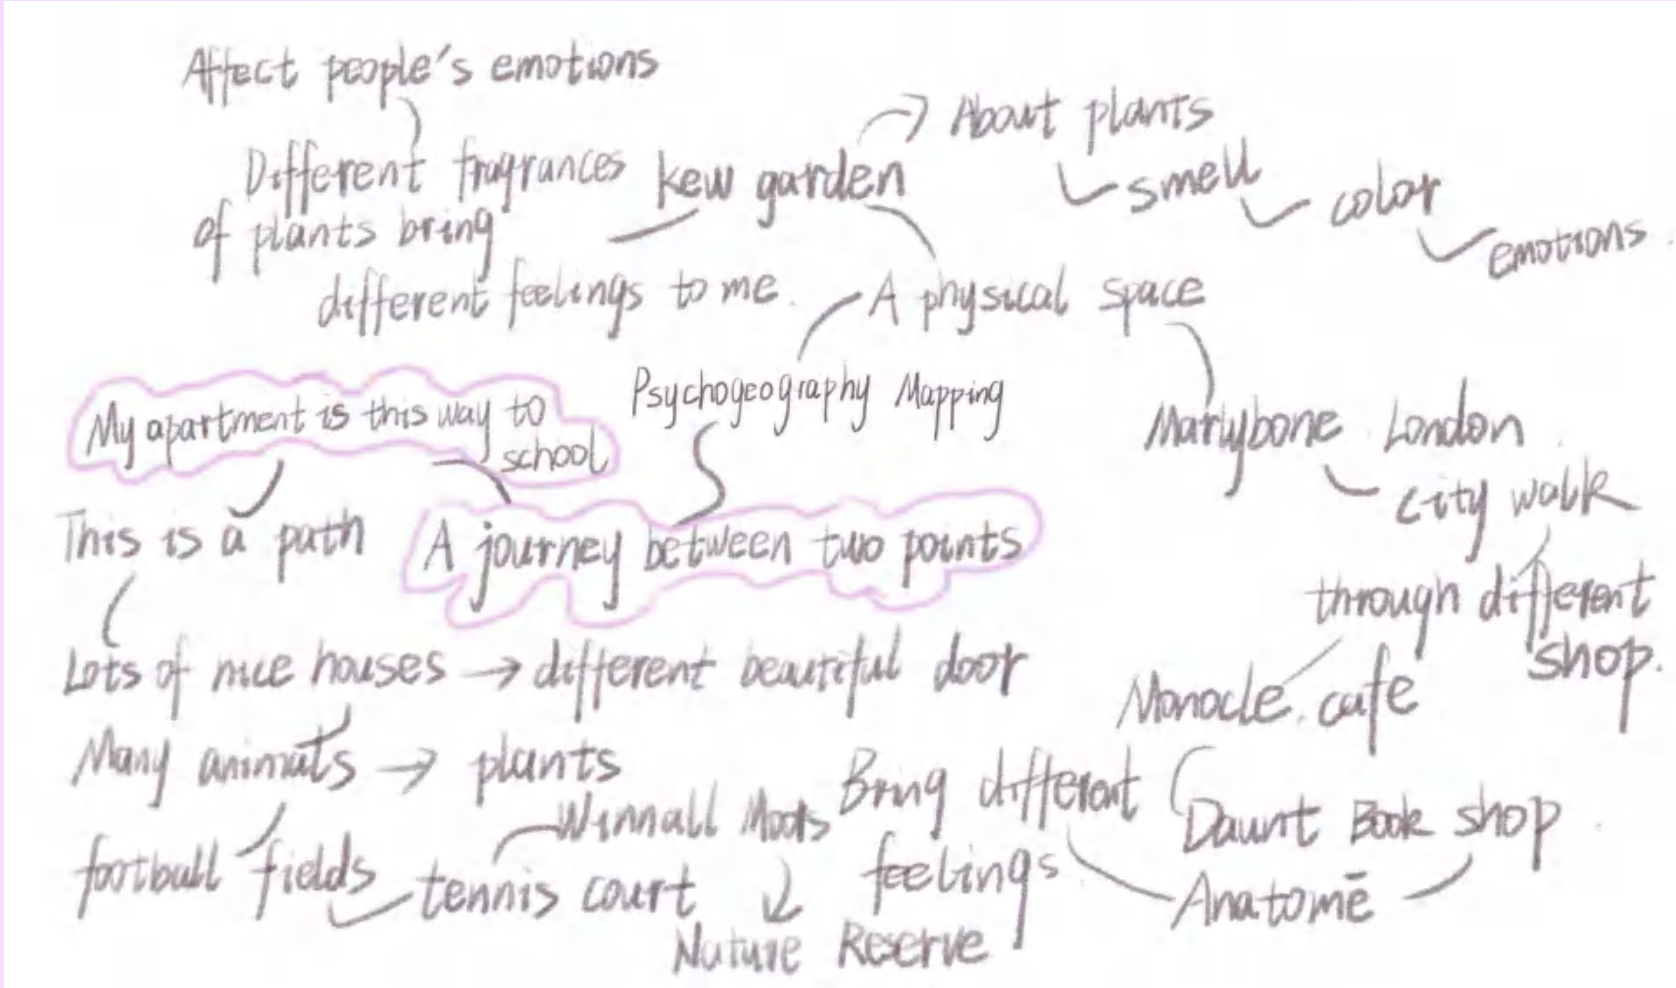 Affect people's emotions
Different fragrances
of plants bring
different feelings to me.
kew garden
About plants
smell
color
emotions.
A physical space
Psychogeography Mapping
Marlybone London.
city walk
through different
shop.
Monocle. cafe
Daunt Book shop.
Anatomē
Bring different
feelings
My apartment is this way to
school
A journey between two points
This is a path
Lots of nice houses → different beautiful door
Many animals → plants
football fields
tennis court
Winnall Moors
Nature Reserve